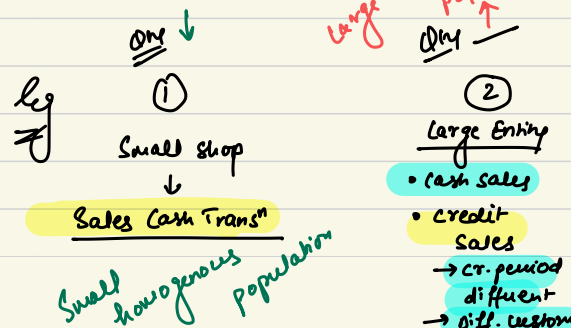 Large
Qty ↓
Qty
eg
①
②
Small shop
↓
Sales Cash Transⁿ
Small
homogenous
population
Large Entity
• Cash sales
• Credit
Sales
→ Cr. period
different
→ Diff. custom